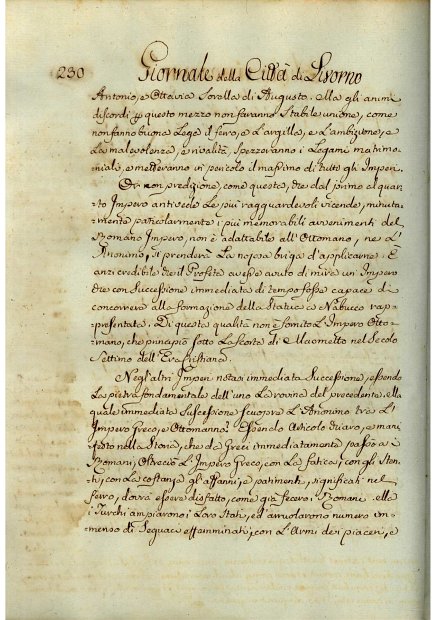 230 Giornale della Città di Livorno
Antonio, e Ottavia Sorella di Augusto. Ma gli animi
discordi p questo mezzo non faranno Stabile unione, come
non fanno buona Lega il ferro, e L'argilla, e L'ambizione, e
La malevolenza, e rivalità, spezzeranno i Legami matrimo-
niali, e metteranno in pericolo il massimo di tutti gli Imperi.
Or non predizione, come questa, che dal primo al quar-
to Impero antivede Le più ragguardevoli vicende, minuta-
mente particolarmente i più memorabili avvenimenti del
Romano Impero, non è adattabile all'Ottomano, ne L'
Anonimo, si prenderà La nojosa briga d'applicarne. È
anzi credibile che il Profeta avesse avuto di mira un Impero
che con Successione immediata di tempo fosse capace di
concorrere alla formazione della Statua a Nabucco rap-
presentata. Di questa qualità non è fornito L'Impero Otto-
mano, che principiò sotto La Scorta di Maometto nel Secolo
Settimo dell'Era Cristiana.
Negli altri Imperi notasi immediata Successione, essendo
La pietra fondamentale dell'uno La rovina del precedente. Ma
quale immediata Successione scuopre L'Anonimo tra L'
Impero Greco, e Ottomanno? Essendo Articolo chiaro, e mani-
festo nella Storia, che da Greci immediatamente passò a i
Romani, Oltreciò L'Impero Greco, con La fatica, con gli Sten-
ti, con La costanza gli affanni, e patimenti, significati nel
ferro, dovrà essere disfatto, come già fecero i Romani. Ma
i Turchi ampiarono i Loro Stati, ed arruolarono numero im-
menso di Seguaci effemminati, con L'Armi dei piaceri, e